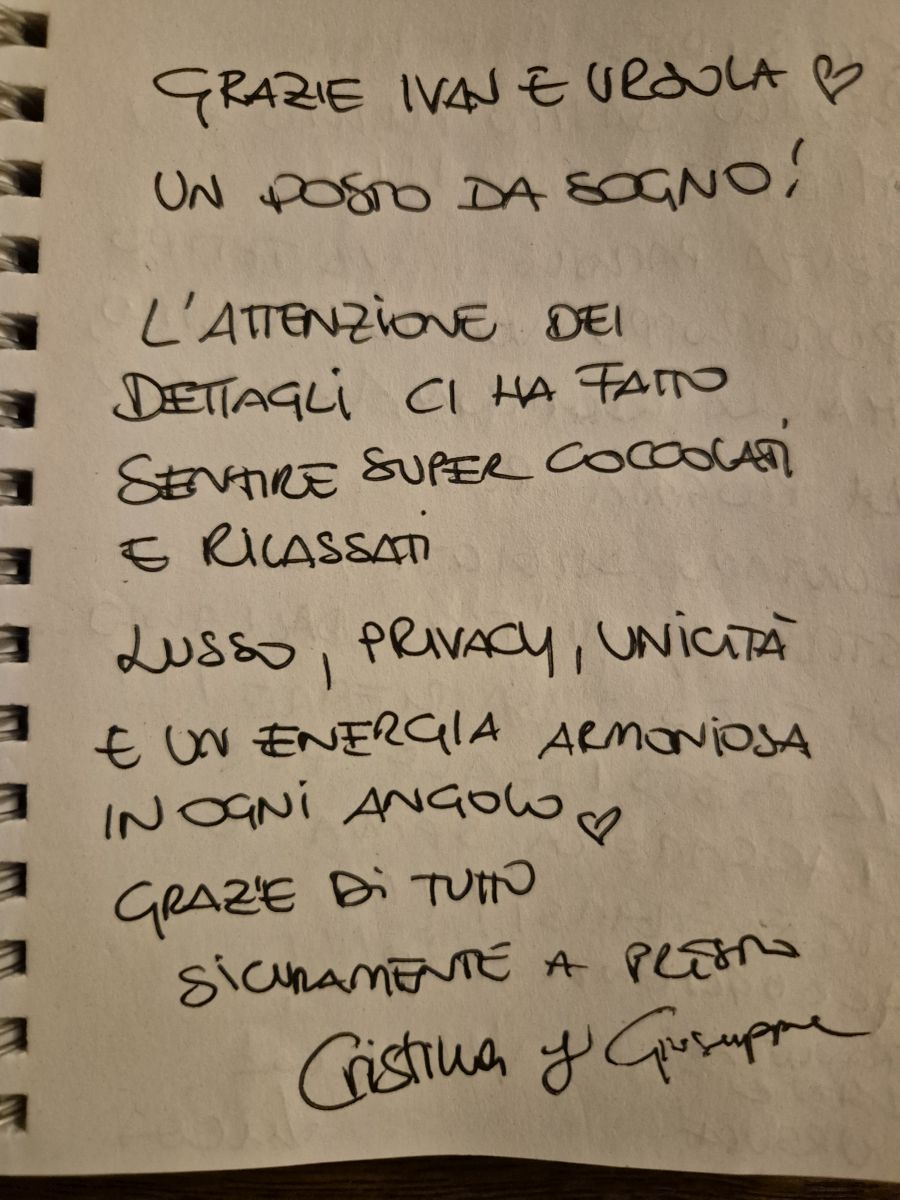 GRAZIE IVAN E URSULA ♡
UN POSTO DA SOGNO!
L'ATTENZIONE DEI
DETTAGLI CI HA FATTO
SENTIRE SUPER COCCOLATI
E RILASSATI
LUSSO, PRIVACY, UNICITÀ
E UN ENERGIA ARMONIOSA
IN OGNI ANGOLO ♡
GRAZIE DI TUTTO
SICURAMENTE A PRESTO
Cristina y Giuseppe